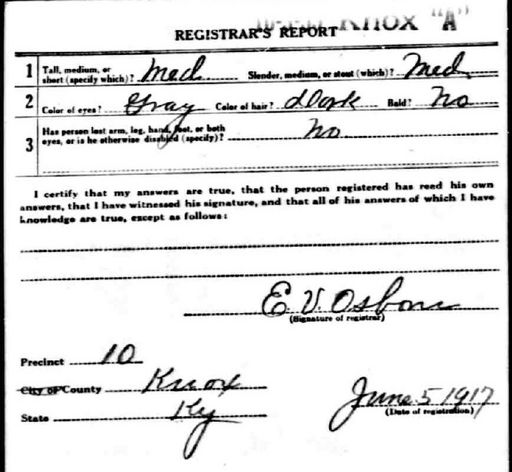 Knox "A"
REGISTRAR'S REPORT
1 Tall, medium, or short (specify which)? Med Slender, medium, or stout (which)? Med
2 Color of eyes? Gray Color of hair? Dark Bald? No
3 Has person lost arm, leg, hand, foot, or both eyes, or is he otherwise disabled (specify)? No
I certify that my answers are true, that the person registered has read his own
answers, that I have witnessed his signature, and that all of his answers of which I have
knowledge are true, except as follows:
E. V. Osborn
(Signature of registrar)
Precinct 10
City or County Knox
State Ky
June 5 1917
(Date of registration)